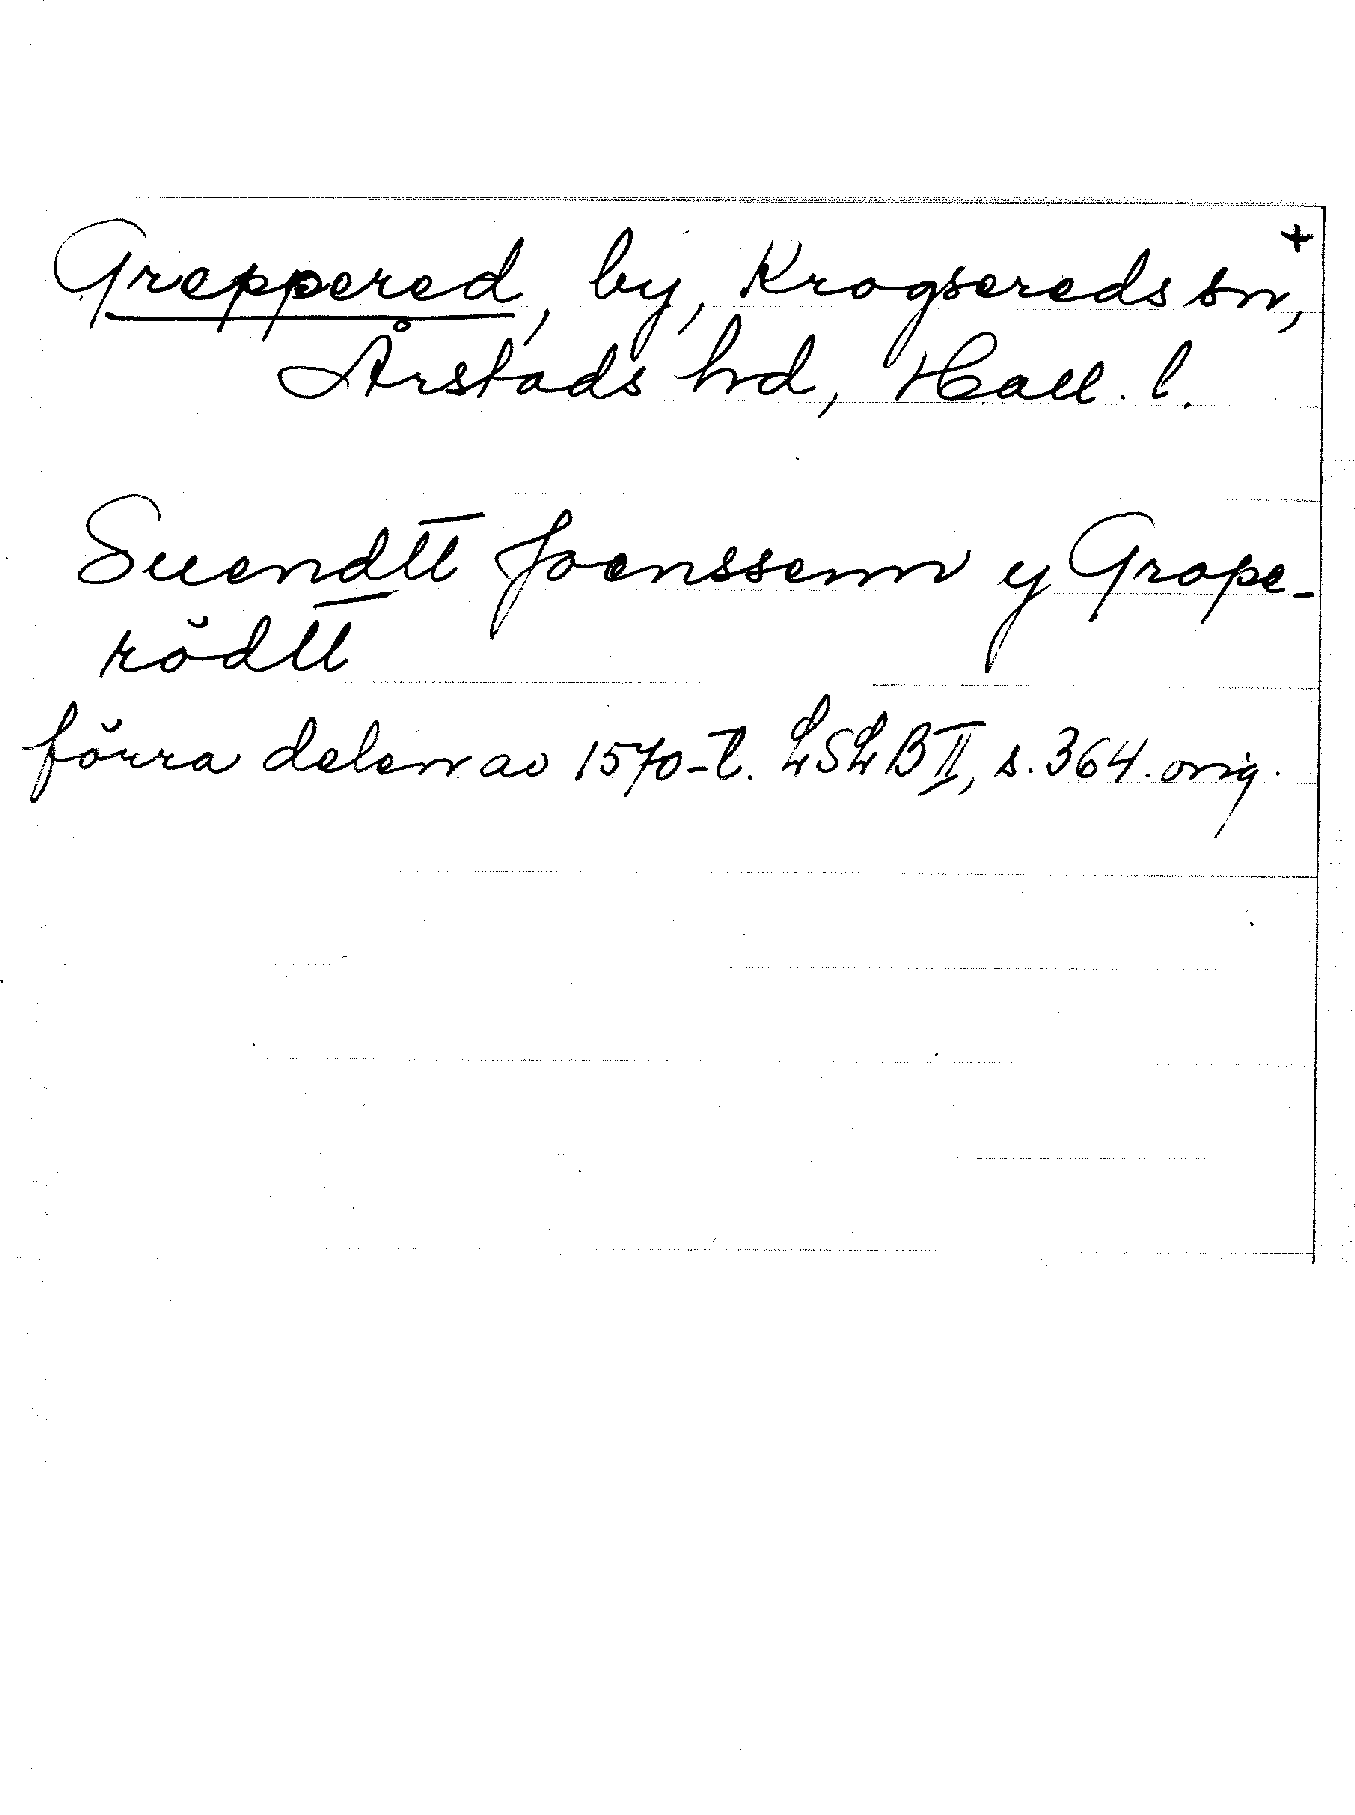 Greppered, by, Krogsereds sn, +
Årstads hd, Hall. l.
Suendtt Joenssenn y Grope-
rödtt
förra delen av 1570-t. LSLB II, s. 364. orig.